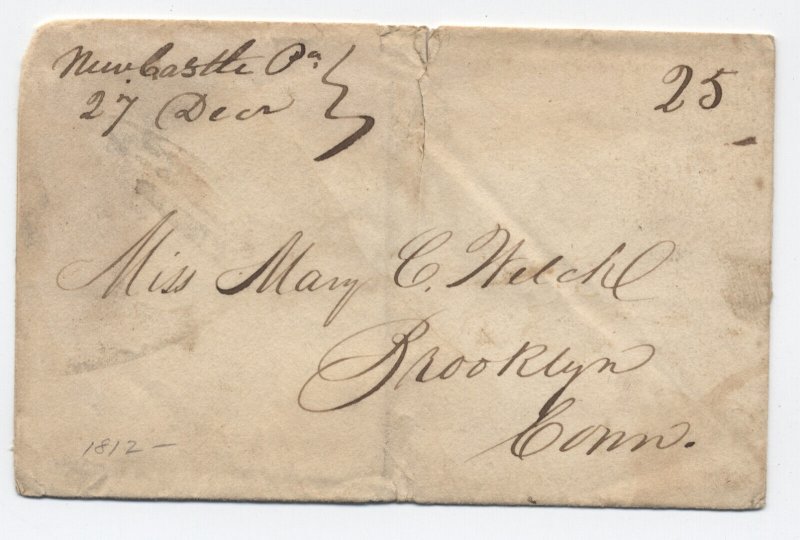 New Castle Pa
27 Decr
25
Miss Mary C. Welch
Brooklyn
Conn.
1812 -